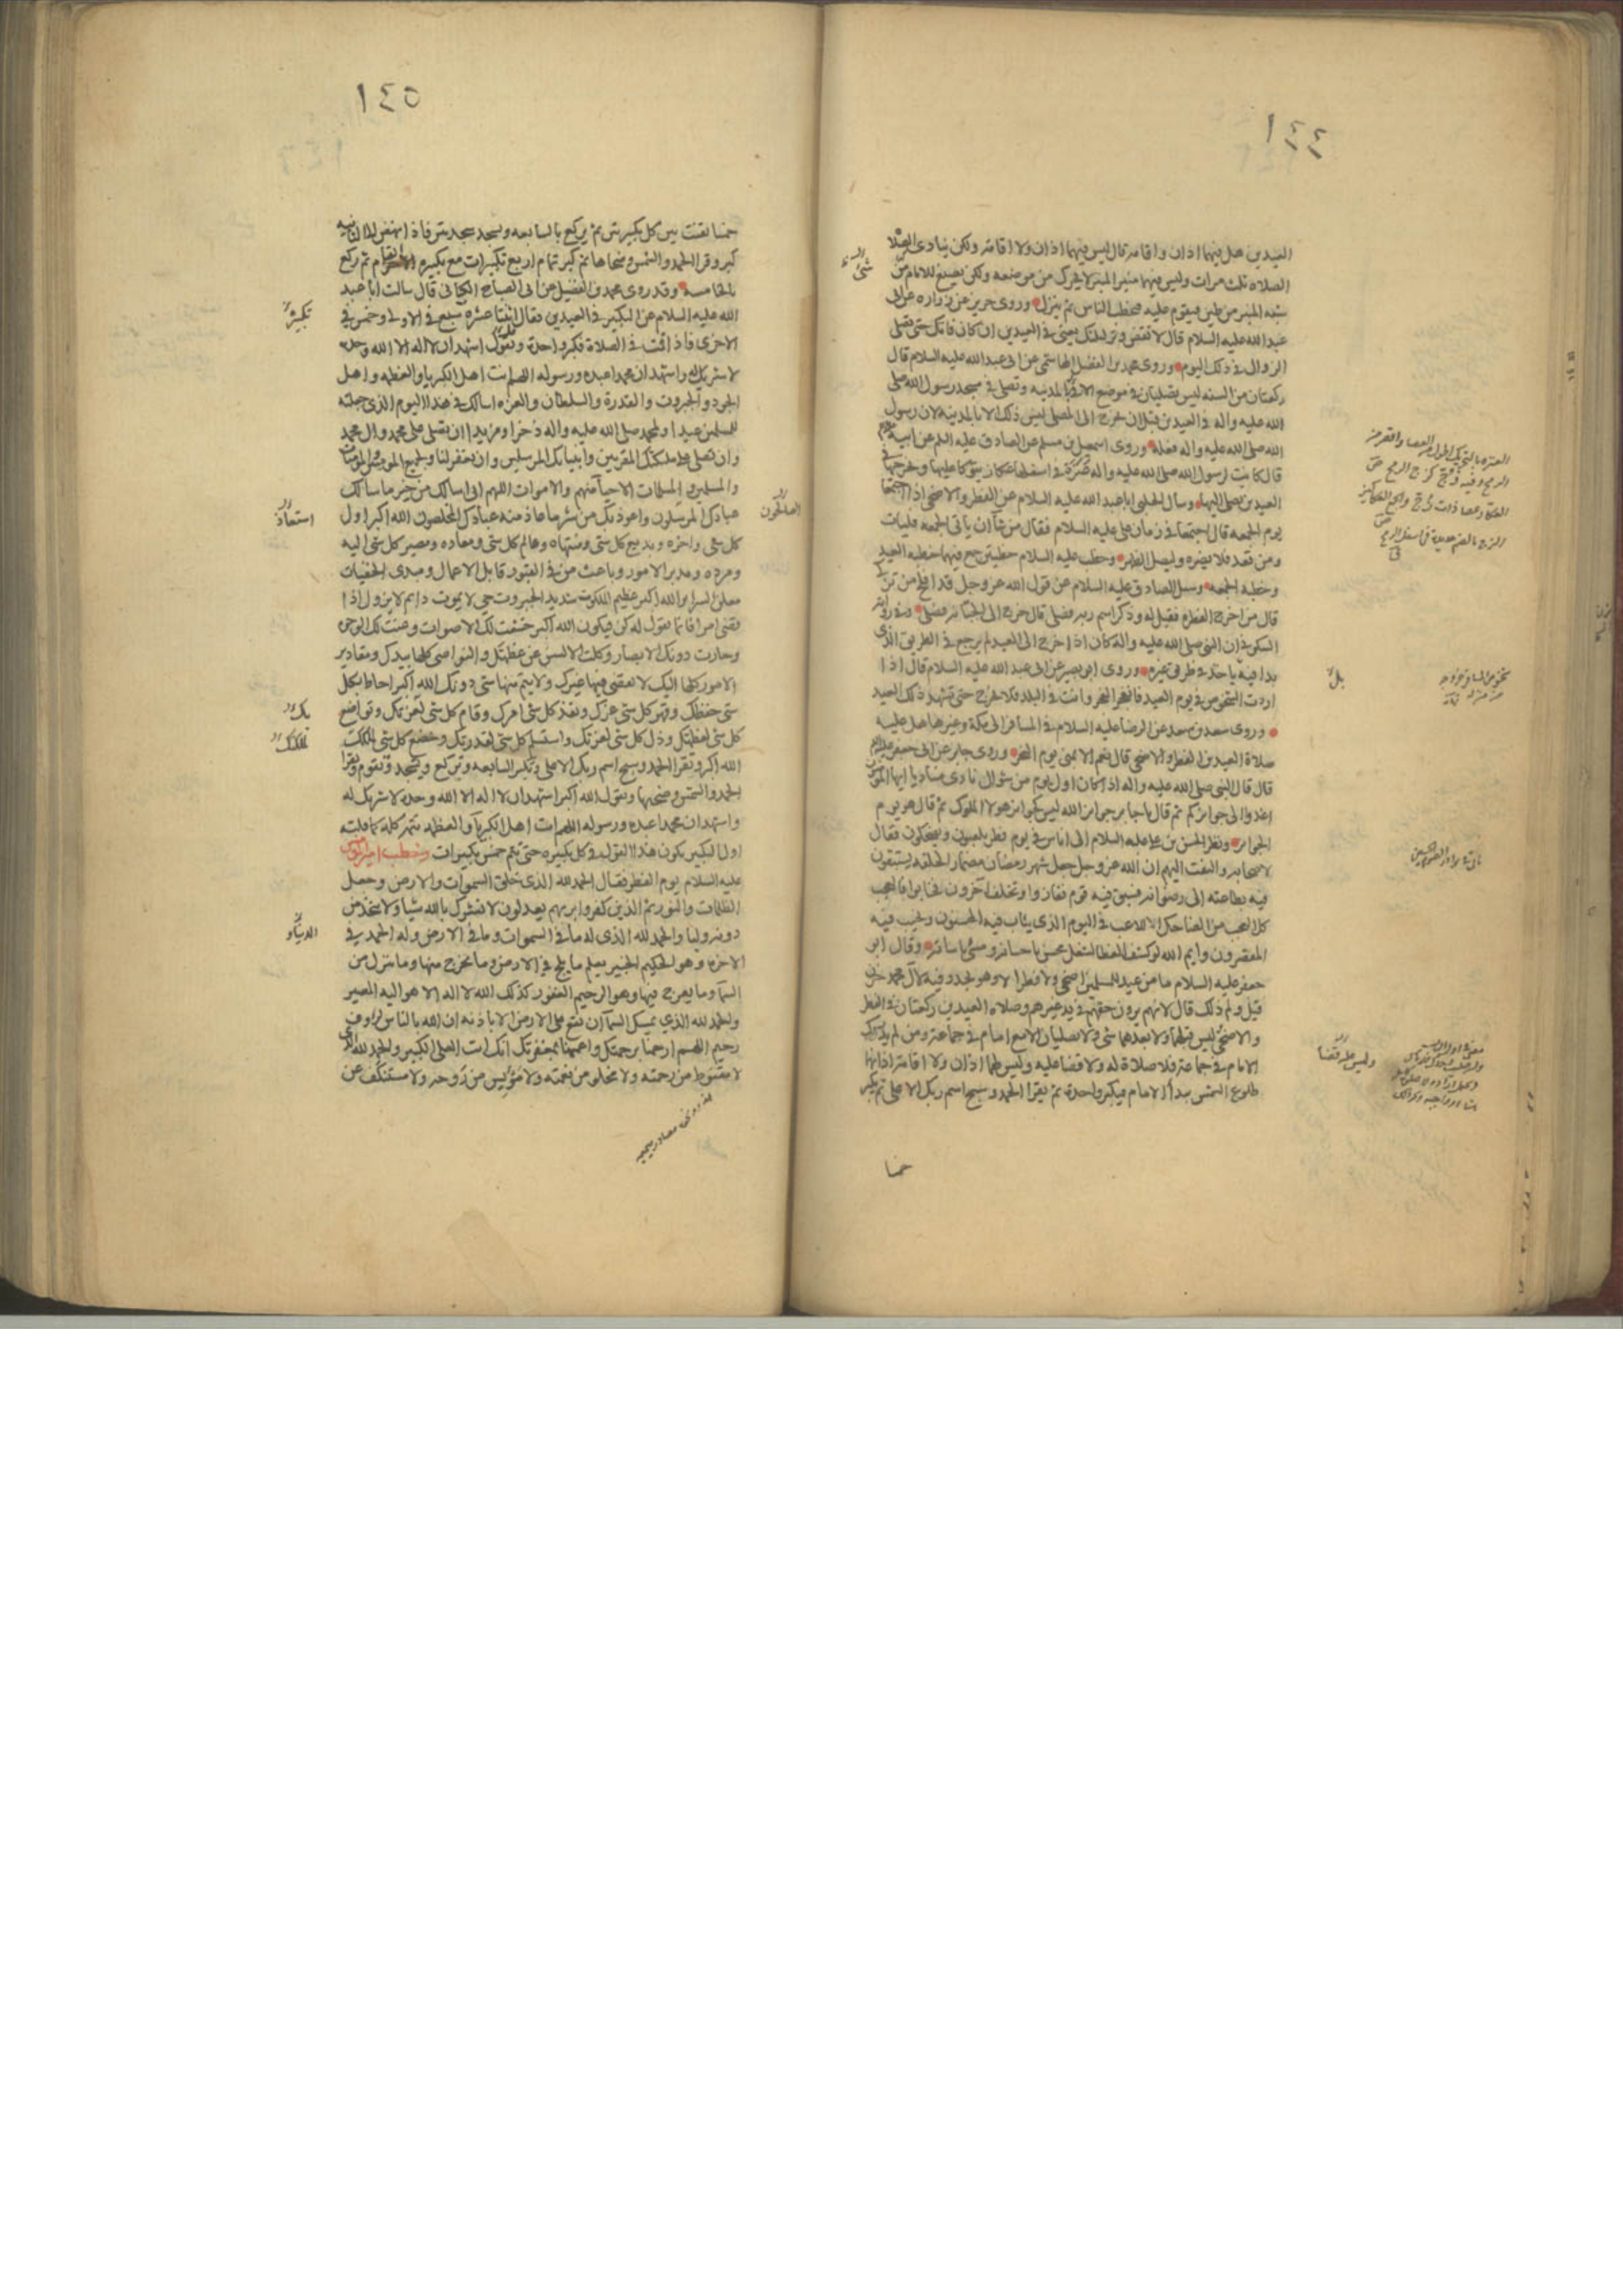 ١٤٤
العيدين هل فيهما اذان واقامة قال ليس فيهما اذان ولا اقامة ولكن ينادى الصلاة
الصلاة ثلث مرات وليس فيهما منبر المنبر لا يحرك من موضعه ولكن يصنع للامام من
شبه المنبر من طين فيقوم عليه فيخطب الناس ثم ينزل وروى حريز عن زراره عن ابى
عبد الله عليه السلام قال لا تقض وتر ليلتك يعنى فى العيدين ان كان فاتك حتى تصلى
الزوال فى ذلك اليوم وروى محمد بن الفضل الهاشمى عن ابى عبد الله عليه السلام قال
ركعتان من السنه ليس يصليان فى موضع الا فى المدينه وتصلى فى مسجد رسول الله صلى
الله عليه واله فى العيدين قبل ان يخرج الى المصلى ليس ذلك الا بالمدينة لان رسول
الله صلى الله عليه واله فعله وروى اسمعيل بن مسلم عن الصادق عليه السلم عن ابيه
قال كانت لرسول الله صلى الله عليه واله عنزة فى اسفلها عكاز يتوكا عليها ويخرجها فى
العيدين يصلى اليها وسال الحلبى ابا عبد الله عليه السلام عن الفطر والاضحى اذا اجتمعا
يوم الجمعه قال اجتمعا فى زمان على عليه السلام فقال من شآ ان ياتى الجمعه فليات
ومن قعد فلا يضره وليصل الظهر وخطب عليه السلام خطبتين جمع فيهما خطبه العيد
وخطبة الجمعه وسئل الصادق عليه السلام عن قول الله عز وجل قد افلح من تزكى
قال من اخرج الفطره فقيل له وذكر اسم ربه فصلى قال خرج الى الجبانه فصلى وفى روايه
السكونى ان النبى صلى الله عليه واله كان اذا خرج الى العيد لم يرجع فى الطريق الذى
بدا فيه ياخذ فى طريق غيره وروى ابو بصير عن ابى عبد الله عليه السلام قال اذا
اردت الشخوص فى يوم العيد فانفجر الفجر وانت فى البلد فلا تخرج حتى تشهد ذلك العيد
وروى سعد بن سعد عن الرضا عليه السلام فى المسافر الى مكة وغيرها هل عليه
صلاة العيدين الفطر والاضحى قال نعم الا بمنى يوم النحر وروى جابر عن ابى جعفر
قال قال النبى صلى الله عليه واله اذا كان اول يوم من شوال نادى مناد يا ايها المؤمنون
اغدوا الى جوائزكم ثم قال يا جابر جوائز الله ليس كجوائز هولا الملوك ثم قال هو يوم
الجوائز ونظر الحسن بن على عليه السلام الى اناس فى يوم فطر يلعبون ويضحكون فقال
لاصحابه والتفت اليهم ان الله عز وجل جعل شهر رمضان مضمارا لخلقه يستبقون
فيه بطاعته الى رضوانه فسبق فيه قوم ففازوا وتخلف آخرون فخابوا فالعجب
كل العجب من الضاحك اللاعب فى اليوم الذى يثاب فيه المحسنون ويخيب فيه
المقصرون وايم الله لو كشف الغطا لشغل محسن باحسانه ومسئ باساته وقال ابو
جعفر عليه السلام ما من عيد للمسلمين اضحى ولا فطر الا وهو يجدد فيه لال محمد حزن
قيل ولم ذلك قال لانهم يرون حقهم فى يد غيرهم وصلاه العيدين ركعتان فى الفطر
والاضحى ليس قبلهما ولا بعدهما شى ولا تصليان الا مع امام فى جماعة ومن لم يدرك
الامام فى جماعة فلا صلاة له ولا قضا عليه وليس لهما اذان ولا اقامة اذانهما
طلوع الشمس يبدأ الامام فيكبر واحدة ثم يقرا الحمد وسبح اسم ربك الاعلى ثم يكبر
خمسا
شئ
بل
وليس عليه قضا
١٤٥
خمسا يقنت بين كل تكبيرتين ثم يركع بالسابعه ويسجد سجدتين فاذا نهض الى الثانيه
كبر وقرا الحمد والشمس وضحاها ثم كبر تمام اربع تكبيرات مع تكبيره القيام ثم ركع
بالخامسه وقد روى محمد بن الفضيل عن ابى الصباح الكنانى قال سالت ابا عبد
الله عليه السلام عن التكبير فى العيدين فقال اثنتا عشره سبع فى الاولى وخمس فى
الاخرى فاذا قمت فى الصلاة فكبر واحدة وتقول اشهد ان لا اله الا الله وحده
لا شريك له واشهد ان محمدا عبده ورسوله اللهم انت اهل الكبريا والعظمه واهل
الجود والجبروت والقدرة والسلطان والعزه اسالك فى هذا اليوم الذى جعلته
للمسلمين عيدا ولمحمد صلى الله عليه واله ذخرا ومزيدا ان تصلى على محمد وال محمد
وان تصلى على ملئكتك المقربين وانبيائك المرسلين وان تغفر لنا ولجميع المومنين والمومنات
والمسلمين والمسلمات الاحيآ منهم والاموات اللهم انى اسالك من خير ما سالك
عبادك المرسلون واعوذ بك من شر ما عاذ منه عبادك المخلصون الله اكبر اول
كل شى واخره وبديع كل شى ومنتهاه وعالم كل شى ومعاده ومصير كل شى اليه
ومرده ومدبر الامور وباعث من فى القبور قابل الاعمال ومبدى الخفيات
معلن السراير الله اكبر عظيم الملكوت شديد الجبروت حى لا يموت دايم لا يزول اذا
قضى امرا فانما يقول له كن فيكون الله اكبر خشعت لك الاصوات وعنت لك الوجوه
وحارت دونك الابصار وكلت الالسن عن عظمتك والنواصى كلها بيدك ومقادير
الامور كلها اليك لا يقضى فيها غيرك ولا يتم منها شى دونك الله اكبر احاط بكل
شى حفظك وقهر كل شى عزك ونفذ كل شى امرك وقام كل شى بك وتواضع
كل شى لعظمتك وذل كل شى لعزتك واستسلم كل شى لقدرتك وخضع كل شى لملكك
الله اكبر وتقرا الحمد وسبح اسم ربك الاعلى وتكبر السابعه وتركع وتسجد وتقوم وتقرا
الحمد والشمس وضحيها وتقول الله اكبر اشهد ان لا اله الا الله وحده لا شريك له
واشهد ان محمدا عبده ورسوله اللهم انت اهل الكبريآ والعظمه تتمه كله كما قلته
اول التكبير يكون هذا القول فى كل تكبيره حتى تتم خمس تكبيرات وخطب امير المومنين
عليه السلام يوم الفطر فقال الحمد لله الذى خلق السموات والارض وجعل
الظلمات والنور ثم الذين كفروا بربهم يعدلون لا نشرك بالله شيا ولا نتخذ من
دونه وليا والحمد لله الذى له ما فى السموات وما فى الارض وله الحمد فى
الاخره وهو الحكيم الخبير يعلم ما يلج فى الارض وما يخرج منها وما ينزل من
السمآ وما يعرج فيها وهو الرحيم الغفور كذلك الله لا اله الا هو اليه المصير
والحمد لله الذى يمسك السمآ ان تقع على الارض الا باذنه ان الله بالناس لرؤف
رحيم اللهم ارحمنا برحمتك واعممنا بمغفرتك انك انت العلى الكبير والحمد لله الذى
لا مقنوط من رحمته ولا مخلو من نعمته ولا مؤيس من روحه ولا مستنكف عن
الصالحون
استعاذ
بك
لملكك
الدنيا و